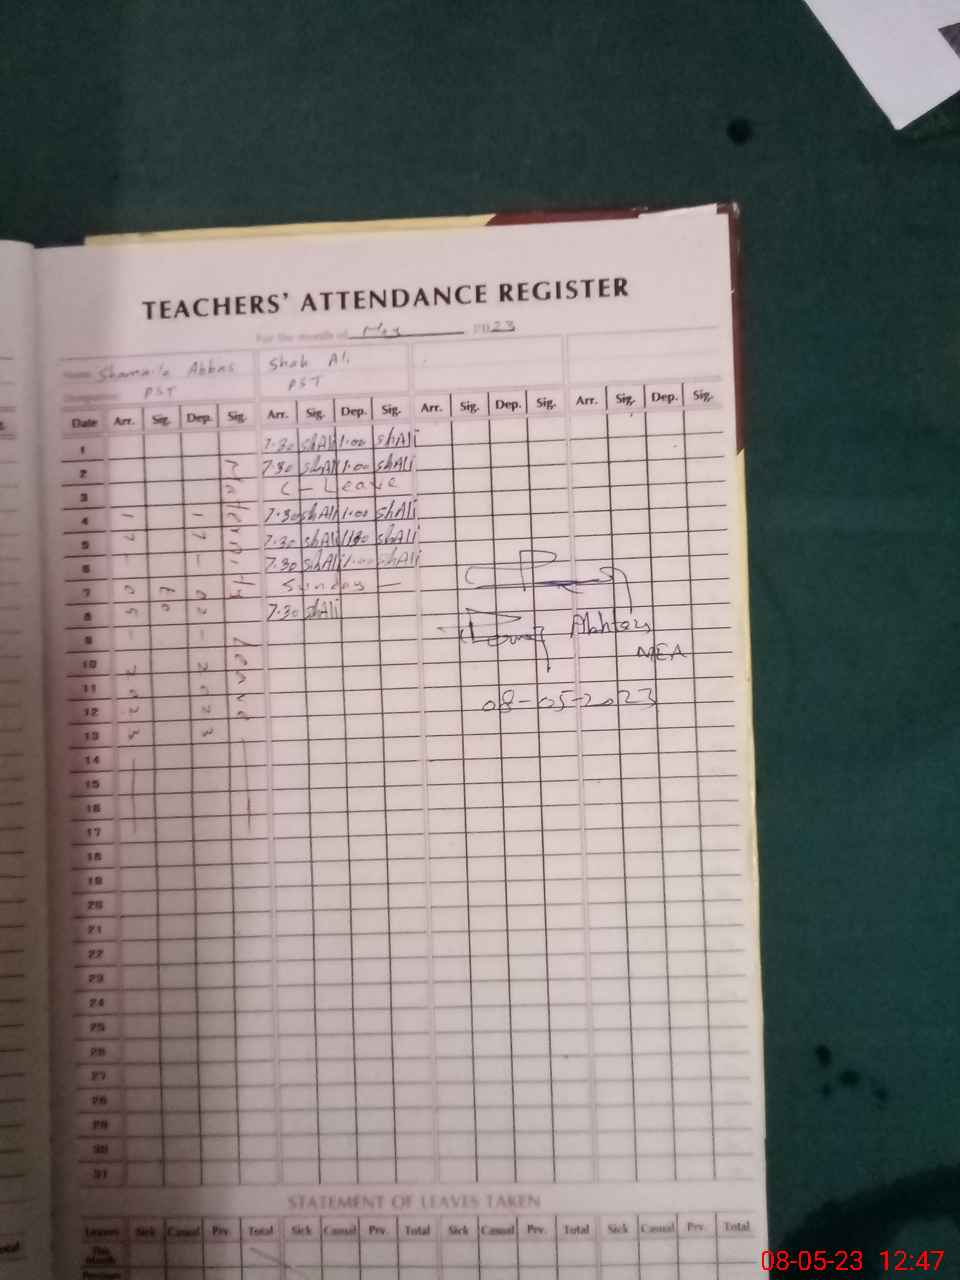 TEACHERS' ATTENDANCE REGISTER
For the month of May 2023
Name Shamaila Abbas Shah Ali
Designation PST PST
Date Arr. Sig. Dep. Sig. Arr. Sig. Dep. Sig. Arr. Sig. Dep. Sig. Arr. Sig. Dep. Sig.
1 7.30 shAli 1.00 shAli
2 7.30 shAli 1.00 shAli
3 C - Leave
4 7.30 shAli 1.00 shAli
5 7.30 shAli shAli
6 7.30 shAli 1.00 shAli
7 Sunday —
8 7.30 shAli
9
10
11
12
13
14
15
16
17
18
19
20
21
22
23
24
25
26
27
28
29
30
31
Maternity Leave
17-02-2023
to
17-05-2023
Akhtar
MEA
08-05-2023
STATEMENT OF LEAVES TAKEN
Leaves Sick Casual Prv. Total Sick Casual Prv. Total Sick Casual Prv. Total Sick Casual Prv. Total
This Month
Previous
08-05-23 12:47